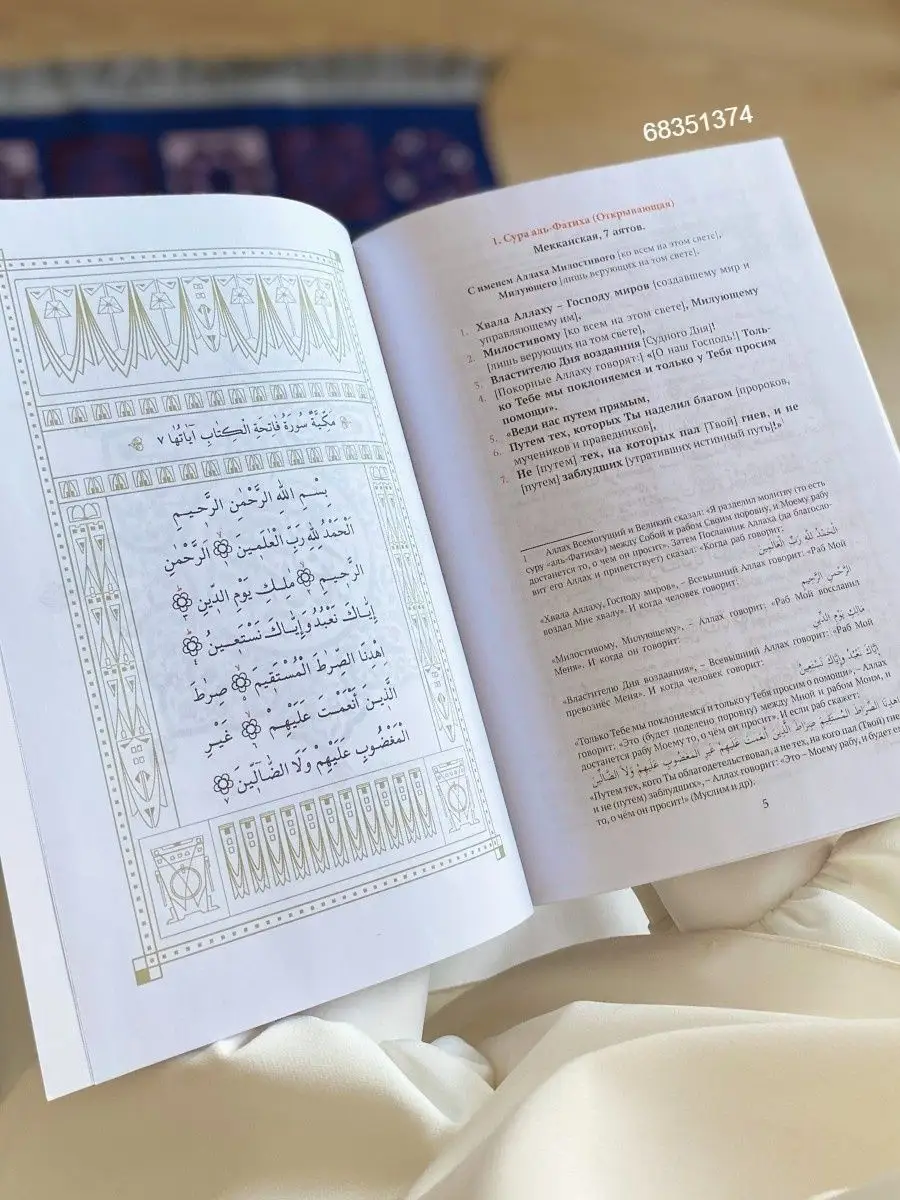 68351374
مَكِّيَّةٌ سُورَةُ فَاتِحَةِ الْكِتَابِ آيَاتُهَا ٧
بِسْمِ اللَّهِ الرَّحْمٰنِ الرَّحِيمِ
الْحَمْدُ لِلَّهِ رَبِّ الْعٰلَمِينَ ١ الرَّحْمٰنِ
الرَّحِيمِ ٢ مٰلِكِ يَوْمِ الدِّينِ ٣
إِيَّاكَ نَعْبُدُ وَإِيَّاكَ نَسْتَعِينُ ٤
اِهْدِنَا الصِّرٰطَ الْمُسْتَقِيمَ ٥ صِرٰطَ
الَّذِينَ أَنْعَمْتَ عَلَيْهِمْ ٦ غَيْرِ
الْمَغْضُوبِ عَلَيْهِمْ وَلَا الضَّآلِّينَ ٧
1. Сура аль-Фатиха (Открывающая)
Мекканская, 7 аятов.
С именем Аллаха Милостивого [ко всем на этом свете],
Милующего [лишь верующих на том свете].
1. Хвала Аллаху – Господу миров [создавшему мир и
управляющему им],
2. Милостивому [ко всем на этом свете], Милующему
[лишь верующих на том свете],
3. Властителю Дня воздаяния [Судного Дня]!
4. [Покорные Аллаху говорят:] «[О наш Господь!] Толь-
ко Тебе мы поклоняемся и только у Тебя просим
помощи».
5. «Веди нас путем прямым,
6. Путем тех, которых Ты наделил благом [пророков,
мучеников и праведников],
7. Не [путем] тех, на которых пал [Твой] гнев, и не
[путем] заблудших [утративших истинный путь]!»
1 Аллах Всемогущий и Великий сказал: «Я разделил молитву (то есть
суру «аль-Фатиха») между Собой и рабом Своим поровну, и Моему рабу
достанется то, о чем он просит». Затем Посланник Аллаха (да благосло-
вит его Аллах и приветствует) сказал: «Когда раб говорит:
الْحَمْدُ لِلَّهِ رَبِّ الْعَالَمِينَ
«Хвала Аллаху, Господу миров», – Всевышний Аллах говорит: «Раб Мой
воздал Мне хвалу». И когда человек говорит:
الرَّحْمَنِ الرَّحِيمِ
«Милостивому, Милующему», – Аллах говорит: «Раб Мой восславил
Меня». И когда он говорит:
مَالِكِ يَوْمِ الدِّينِ
«Властителю Дня воздаяния», – Всевышний Аллах говорит: «Раб Мой
превознёс Меня». И когда человек говорит:
إِيَّاكَ نَعْبُدُ وَإِيَّاكَ نَسْتَعِينُ
«Только Тебе мы поклоняемся и только у Тебя просим о помощи», – Аллах
говорит: «Это (будет поделено поровну) между Мной и рабом Моим, и
достанется рабу Моему то, о чём он просит». И если раб скажет:
اهْدِنَا الصِّرَاطَ الْمُسْتَقِيمَ صِرَاطَ الَّذِينَ أَنْعَمْتَ عَلَيْهِمْ غَيْرِ الْمَغْضُوبِ عَلَيْهِمْ وَلَا الضَّالِّينَ
«Путем тех, кого Ты облагодетельствовал, а не тех, на кого пал (Твой) гнев
и не (путем) заблудших», – Аллах говорит: «Это – Моему рабу, и будет ем
то, о чём он просит!» (Муслим и др.).
5